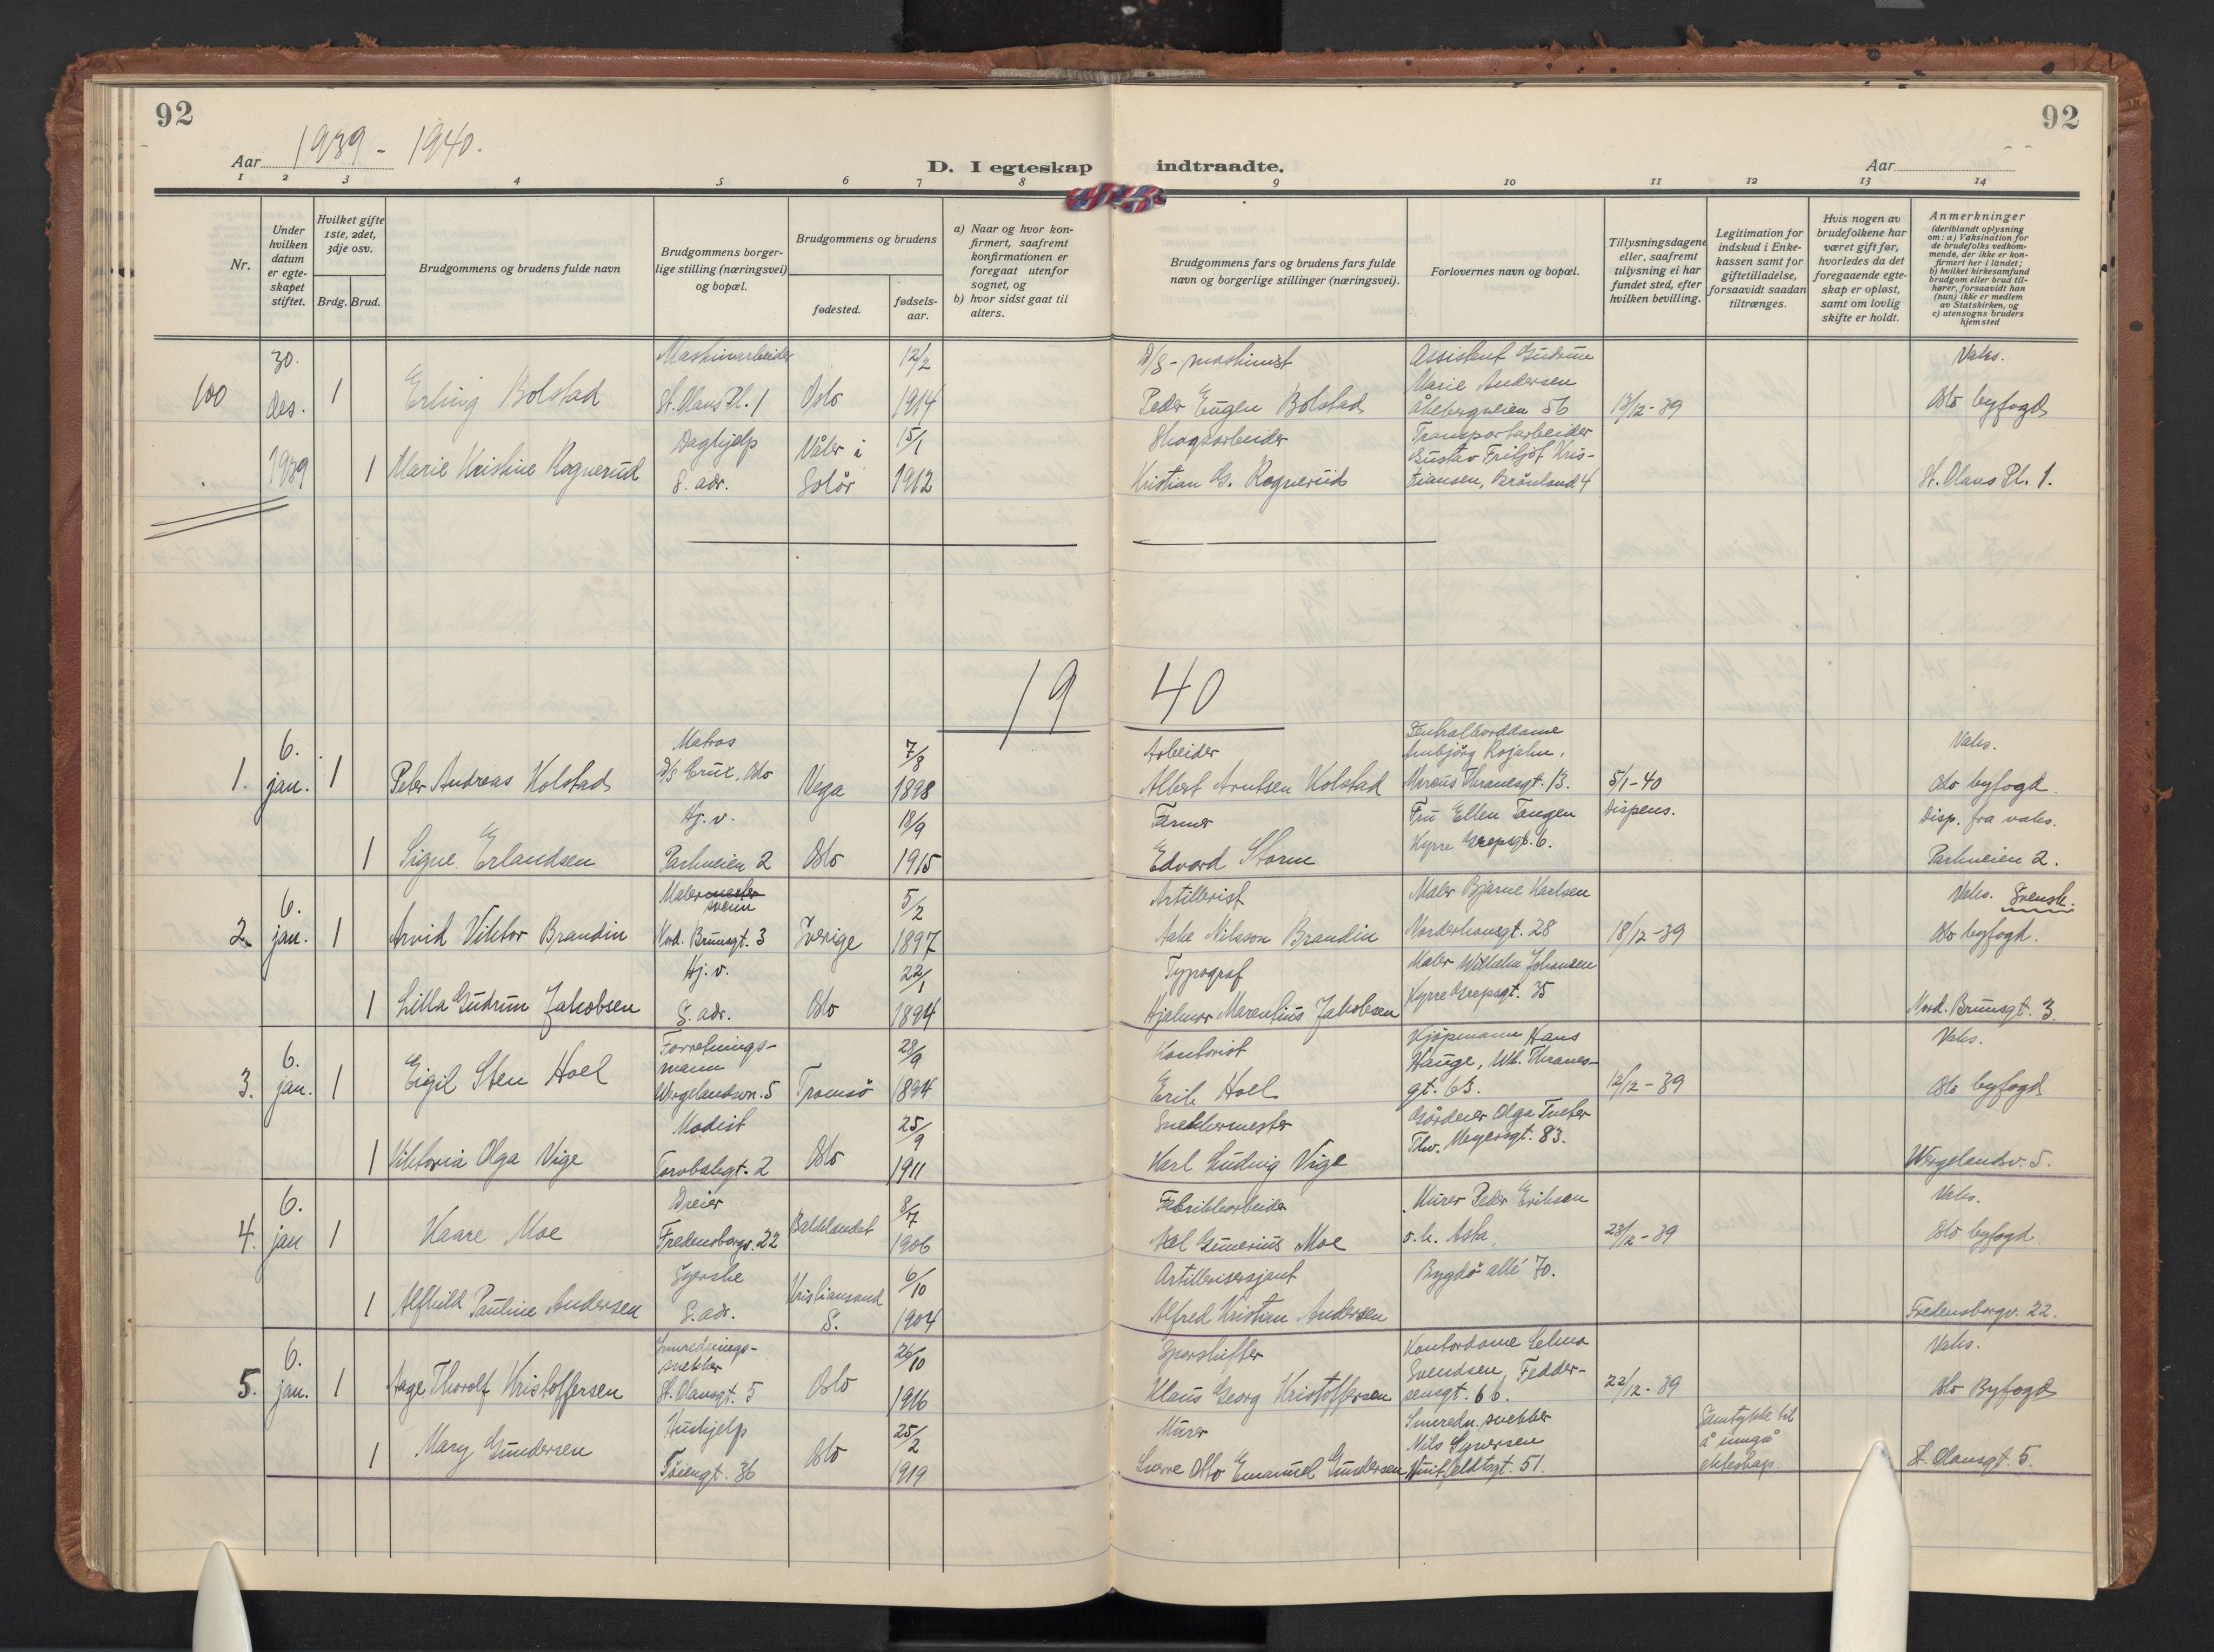 92
92
Aar 1939 - 1940.
D. I egteskap indtraadte.
Aar
1 2 3 4 5 6 7 8 9 10 11 12 13 14
Nr.
Under hvilken datum er egteskapet stiftet.
Hvilket gifte 1ste, 2det, 3dje osv.
Brdg. Brud.
Brudgommens og brudens fulde navn
Brudgommens borgerlige stilling (næringsvei) og bopæl.
Brudgommens og brudens
fødested.
fødselsaar.
a) Naar og hvor konfirmert, saafremt konfirmationen er foregaat utenfor sognet, og
b) hvor sidst gaat til alters.
Brudgommens fars og brudens fars fulde navn og borgerlige stillinger (næringsvei).
Forlovernes navn og bopæl.
Tillysningsdagene eller, saafremt tillysning ei har fundet sted, efter hvilken bevilling.
Legitimation for indskud i Enkekassen samt for giftetilladelse, forsaavidt saadan tiltrænges.
Hvis nogen av brudefolkene har været gift før, hvorledes da det foregaaende egteskap er opløst, samt om lovlig skifte er holdt.
Anmerkninger (deriblandt oplysning om: a) Vaksination for de brudefolks vedkommende, der ikke er konfirmert her i landet; b) hvilket kirkesamfund brudgom eller brud tilhører, forsaavidt han (hun) ikke er medlem av Statskirken, og c) utensogns bruders hjemsted
100 30. des. 1939 1 Erling Bolstad Maskinarbeider St. Olavs Pl. 1 Oslo 12/2 1914 D/S-maskinist Peder Eugen Bolstad Assistent Gudrun Marie Andersen Åkebergveien 56 13/12-39 Vaks. Oslo byfogd
1 Marie Kristine Rognerud Daghjelp S. adr. Våler i Solør 15/1 1912 Skogsarbeider Kristian G. Rognerud Transportarbeider Gustav Fritjof Kristiansen, Grönland 4 St. Olavs Pl. 1.
1940
1. 6. jan. 1 Peter Andreas Kolstad Matros D/S Crux, Oslo Vega 7/8 1898 Arbeider Albert Arntsen Kolstad Sentralborddame Rojahn, Marcus Thranesgt. 13. 5/1-40 Vaks. Oslo byfogd.
1 Signe Erlandsen Hj. v. Parkveien 2 Oslo 18/9 1915 Farmer Edvard Storm Fru Ellen Tangen Kyrre Grepsgt. 6. Dispens. Disp. fra vaks. Parkveien 2.
2. 6. jan. 1 Arvid Viktor Brandin Malermester svenn Nord. Brunsgt. 3 Sverige 5/2 1897 Artillerist Aake Nilsson Brandin Maler Bjarne Karlsen Norderhovsgt. 28 18/12-39 Vaks. Svensk. Oslo byfogd.
1 Lilla Gudrun Jakobsen Hj. v. S. adr. Oslo 22/1 1894 Typograf Hjalmar Marentius Jakobsen Maler Wilhelm Johansen Kyrre Grepsgt. 35 Nord. Brunsgt. 3
3. 6. jan. 1 Eigil Sten Hoel Forretningsmann Wergelandsvn. 5 Tromsö 28/9 1894 Kontorist Erik Hoel Kjöpmann Hans Hauge, Wk. Thranesgt. 63. 12/12-39 Vaks. Oslo byfogd
1 Viktoria Olga Vige Modist Torvbakgt. 2 Oslo 25/9 1911 Snekkermester Karl Ludvig Vige Gårdeier Olga Tveter Thv. Meyersgt. 83. Wergelandsv. 5.
4. 6. jan 1 Kaare Moe Dreier Fredensborgv. 22 8/7 1906 Fabrikkarbeider Gunerius Moe Murer Peder Eriksen o.h. Asta, Bygdö allé 70. 23/12-39 Vaks. Oslo byfogd
1 Alfhild Pauline Andersen Syerske S. adr. Kristiansand S. 6/10 1904 Artillerisersjant Alfred Kristian Andersen Fredensborgv. 22.
5. 6. jan. 1 Aage Thorolf Kristoffersen Innrednings-snekker St. Olavsgt. 5 Oslo 26/10 1916 Sporskifter Klaus Georg Kristoffersen Kontordame Selma Svendsen, Feddersensgt. 6 b. 22/12-39 Vaks. Oslo Byfogd
1 Mary Gundersen Hushjelp Töiengt. 36 Oslo 25/2 1919 Murer Sverre Otto Emanuel Gundersen Innredn. snekker Nils Syversen Huitfeldtsgt. 51. Samtykke til å inngå ekteskap. St. Olavsgt. 5.